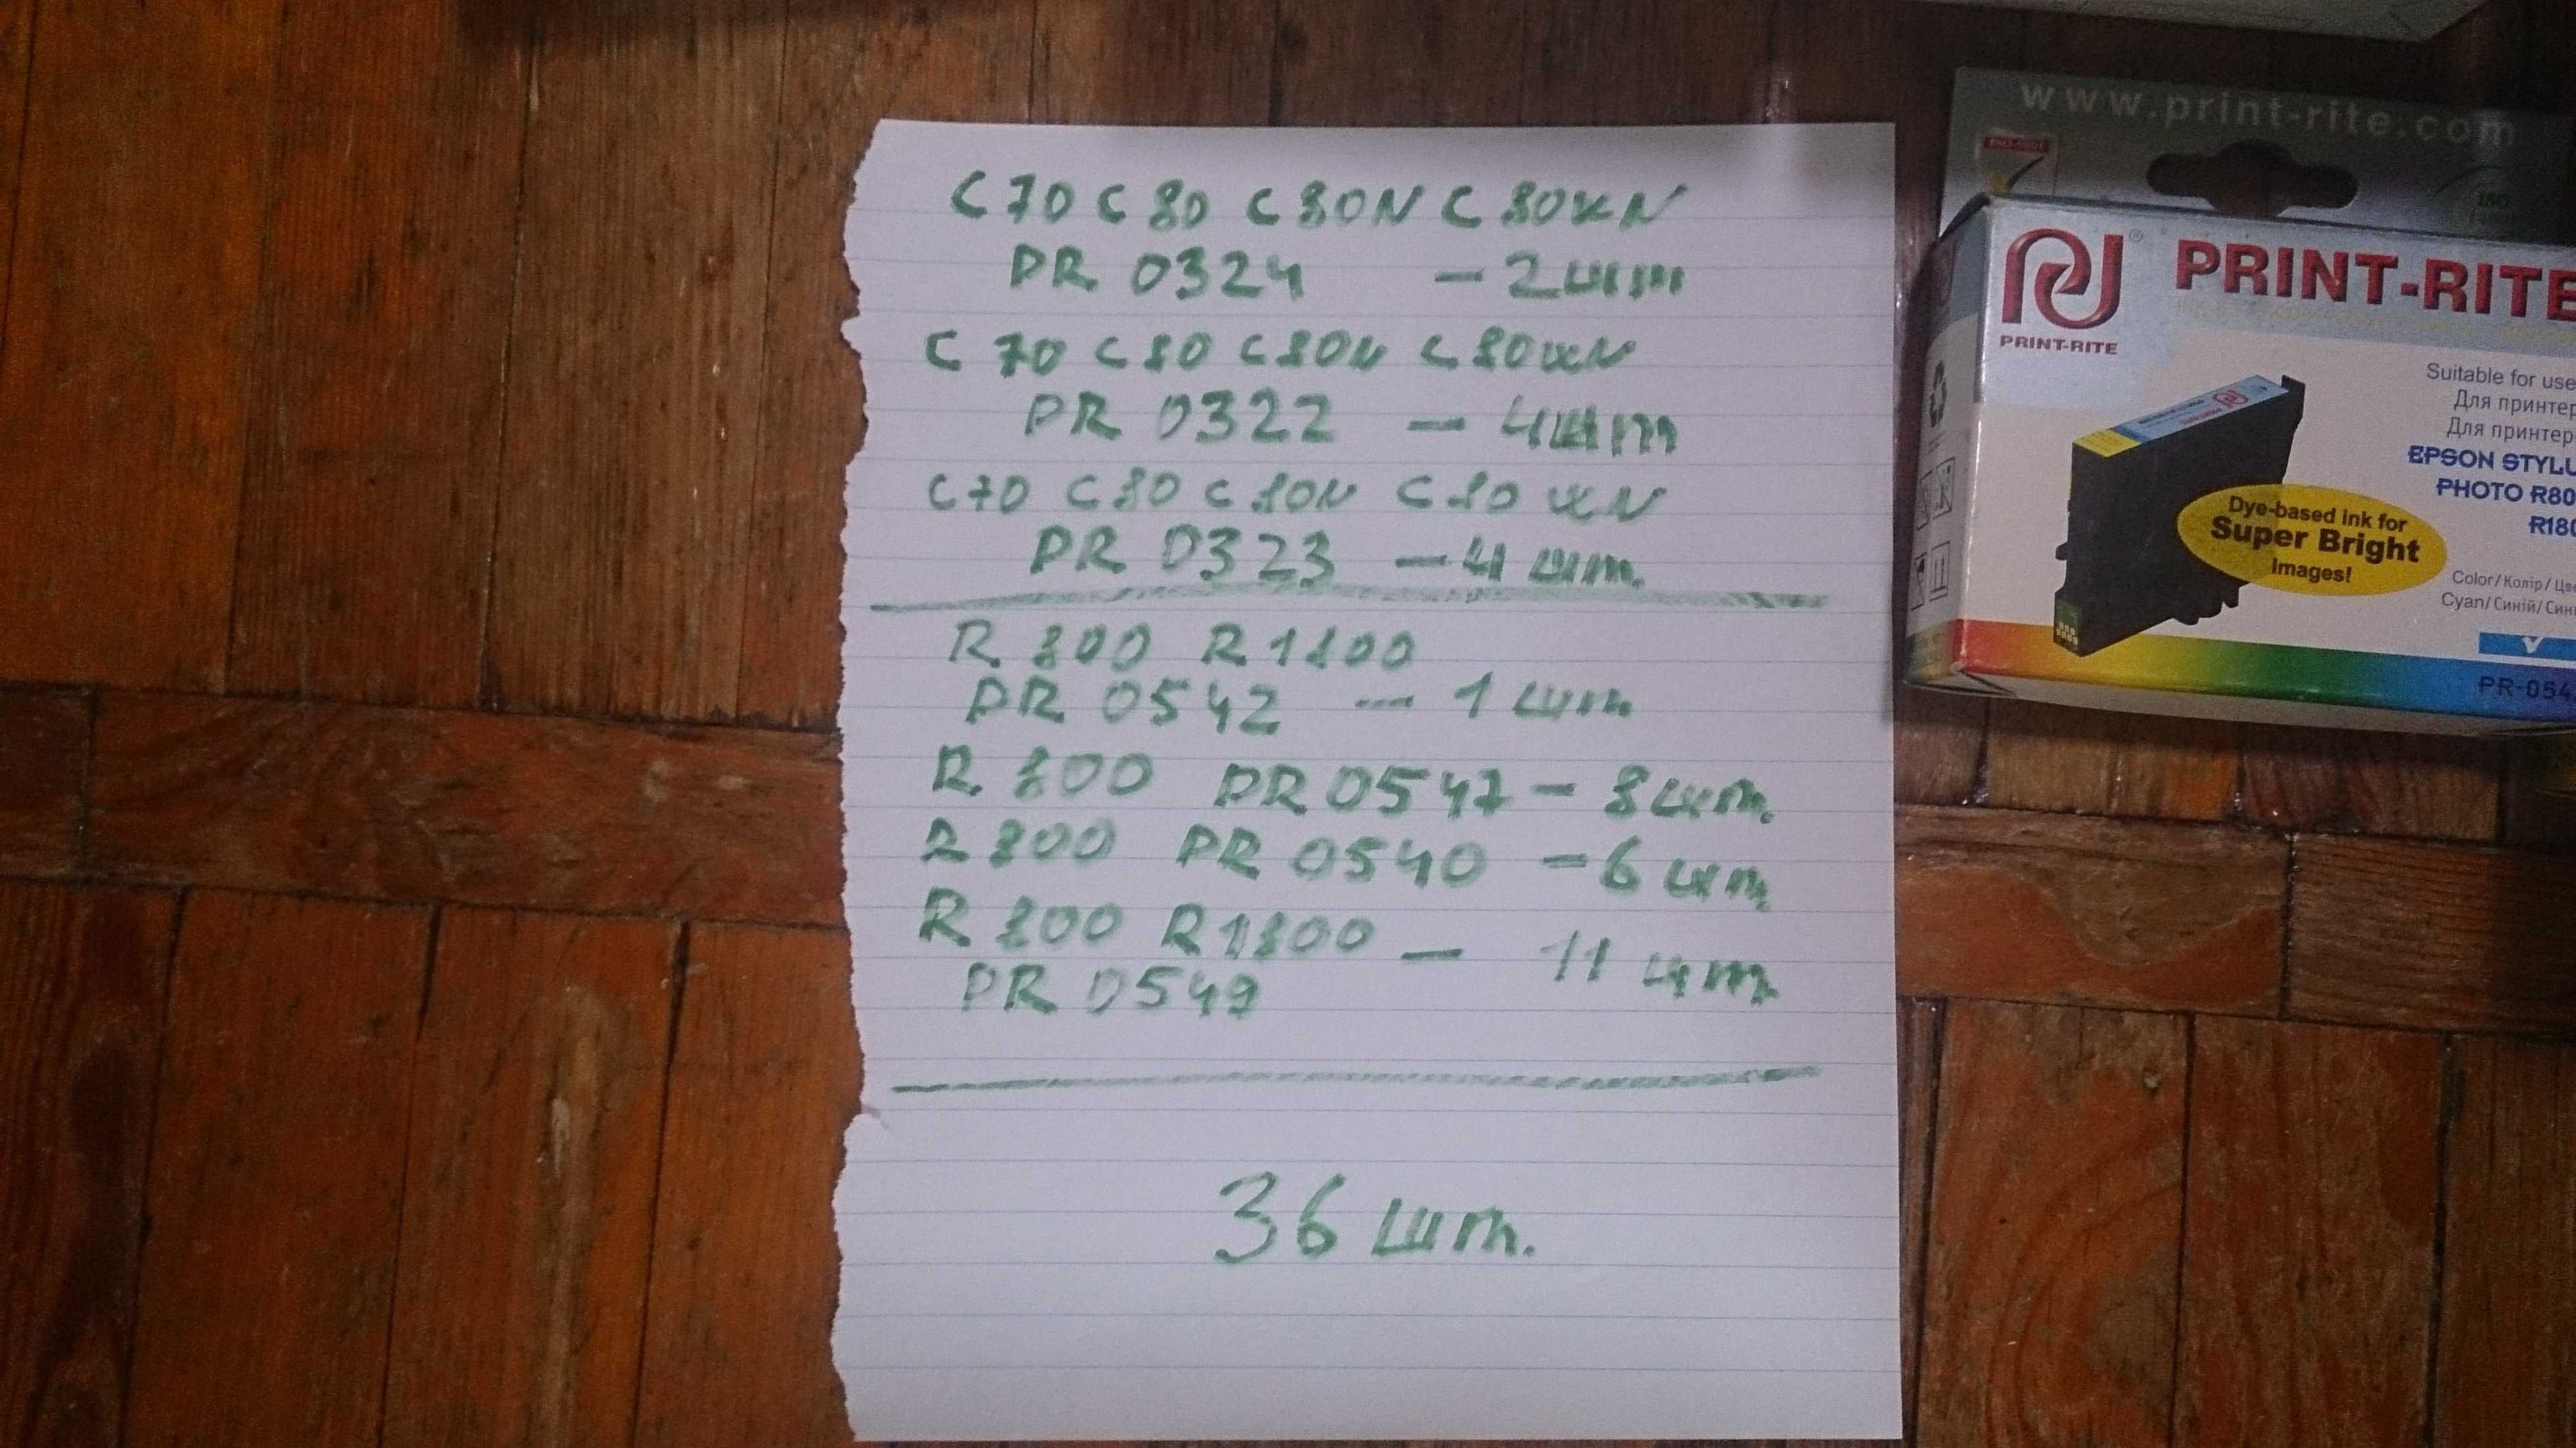 C70 C80 C80N C80WN
PR 0324 - 2шт
C70 C80 C80N C80WN
PR 0322 - 4шт
C70 C80 C80N C80 WN
PR 0323 - 4 шт.
R 800 R1800
PR 0542 - 1 шт.
R 800 PR 0547 - 8 шт.
R 800 PR 0540 - 6 шт.
R 800 R1800 - 11 шт
PR 0549
36 шт.
www.print-rite.com
PRINT-RITE
PRINT-RITE
Suitable for use
Для принтер
Для принтер
EPSON STYLU
PHOTO R80
R180
Dye-based ink for
Super Bright
Images!
Color/Колір/Цве
Cyan/Синій/Син
PR-054